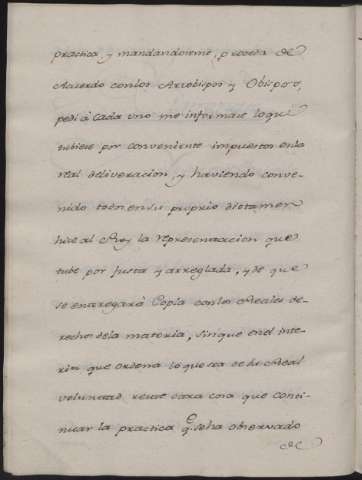 practica, y mandandoseme, proceda de
Acuerdo con los Arzobispos y Obispos,
pedi à Cada uno me informase lo que
tubiese por conveniente impuestos en la
rèal deliveracion, y haviendo conve-
nido todos en su proprio dictamen
hize al Rey la representacion que
tube por Justa y arreglada, y de que
se enargarà Copia con los Reales de-
rechos dela materia, sin que en el inte-
rin que ordena lo que sea de su Real
voluntad reste otra cosa que conti-
nuar la practica qe. se ha observado
de